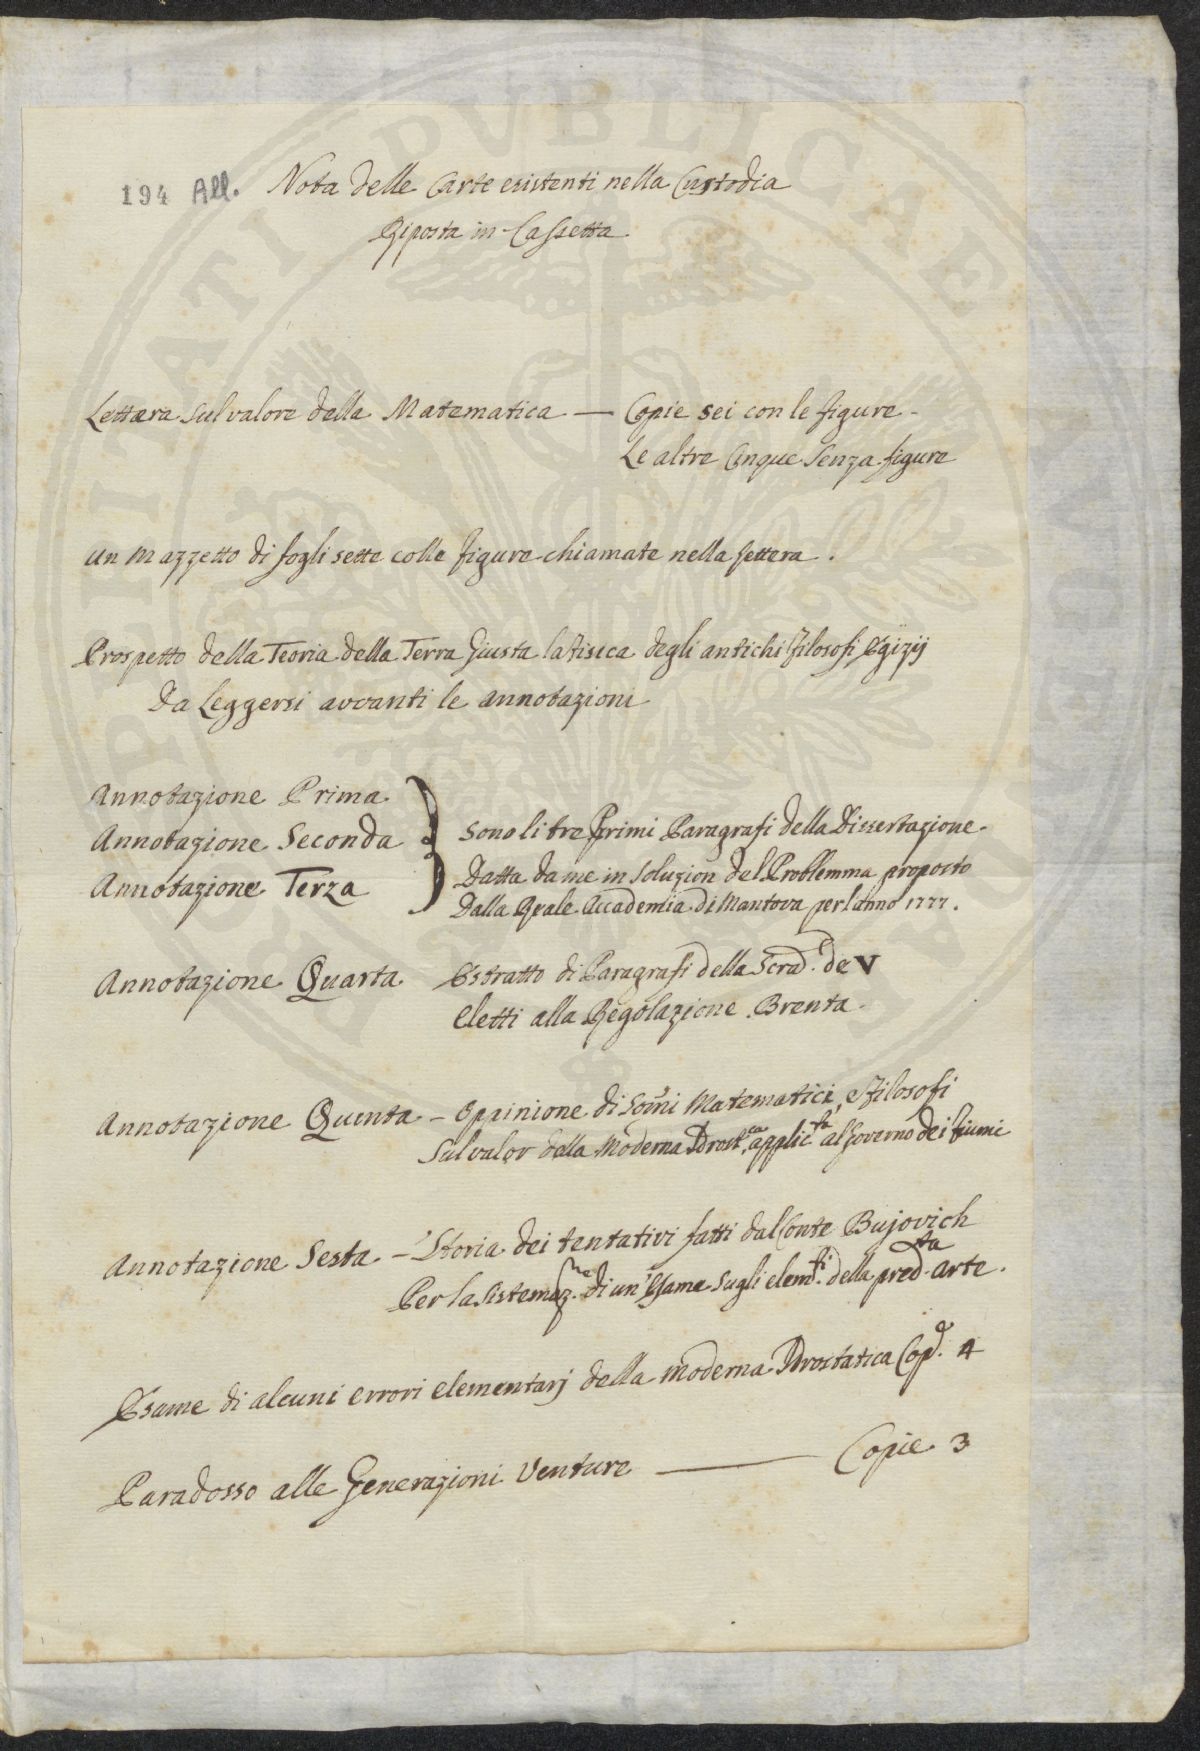 194 All. Nota delle Carte esistenti nella Custodia
Riposta in Cassetta
Lettera sul valore della Matematica — Copie sei con le figure
Le altre Cinque senza figure
Un Mazzetto di fogli sette colle figure chiamate nella lettera.
Prospetto della Teoria della Terra giusta la fisica degli antichi filosofi Egizij
Da Leggersi avvanti le annotazioni
Annotazione Prima
Annotazione Seconda
Annotazione Terza
Sono li tre Primi Paragrafi della Dissertazione
Datta da me in soluzion del Problemma proposto
Dalla Reale Accademia di Mantova per l'anno 1777.
Annotazione Quarta Estratto di Paragrafi della Scrad. de V
eletti alla Regolazione Brenta
Annotazione Quinta – Oppinione di Somi Matematici, e filosofi
Sul valor della Moderna Idrostca. applicta al Governo dei fiumi
Annotazione Sesta – Storia dei tentativi fatti dal Conte Bujovich
Per la sistemazne. di un' Esame sugli elemti. della predta. arte.
Esame di alcuni errori elementarj della moderna Idrostatica Cope. 4
Paradosso alle Generazioni Venture — Copie 3
PUBLICAE